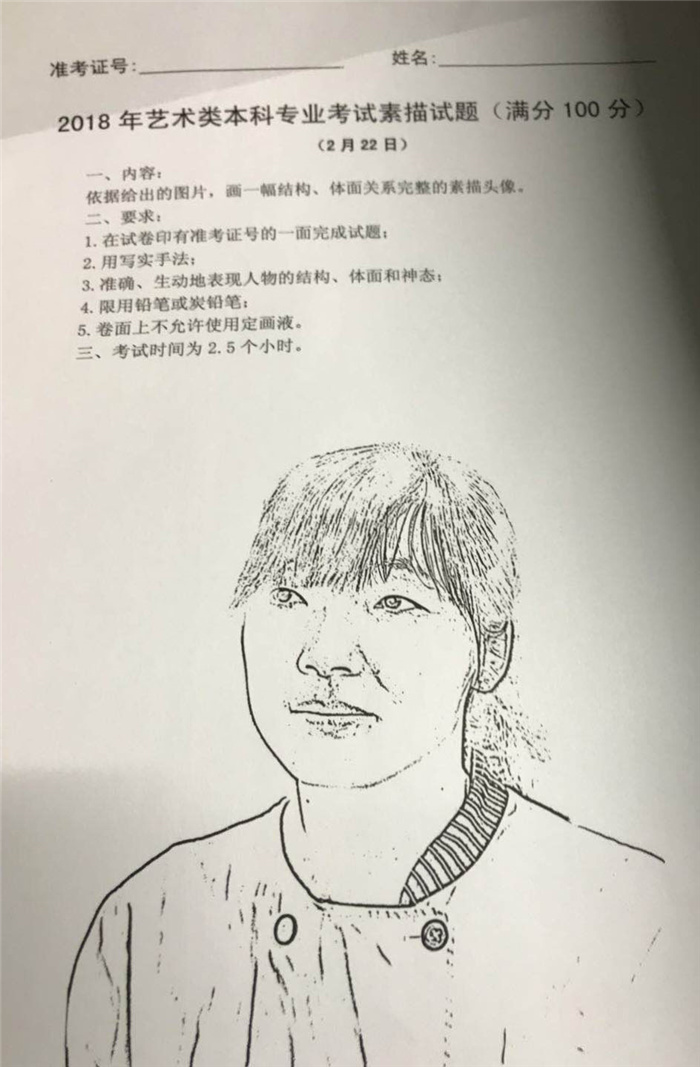 准考证号: 姓名:
2018 年艺术类本科专业考试素描试题（满分 100 分）
（2 月 22 日）
一、内容:
依据给出的图片，画一幅结构、体面关系完整的素描头像。
二、要求:
1. 在试卷印有准考证号的一面完成试题;
2. 用写实手法;
3. 准确、生动地表现人物的结构、体面和神态;
4. 限用铅笔或炭铅笔;
5. 卷面上不允许使用定画液。
三、考试时间为 2.5 个小时。